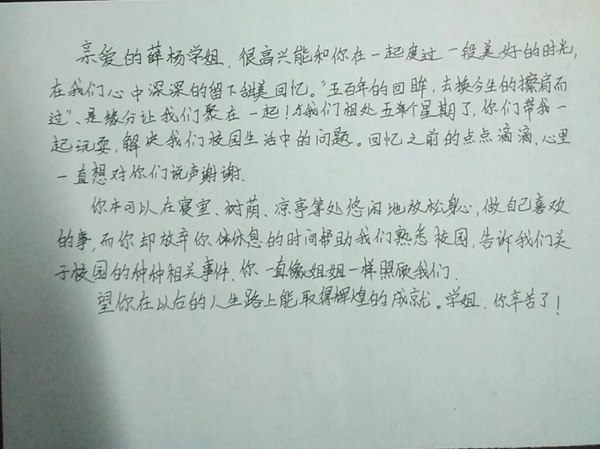 亲爱的薛杨学姐，很高兴能和你在一起度过一段美好的时光，
在我们心中深深的留下甜美回忆。“五百年的回眸，去换今生的擦肩而
过”、是缘分让我们聚在一起！与我们相处五个星期了，你们带我一
起玩耍，解决我们校园生活中的问题。回忆之前的点点滴滴、心里
一直想对你们说声谢谢．
你本可以在寝室、树荫、凉亭等处悠闲地放松身心，做自己喜欢
的事，而你却放弃你休息的时间帮助我们熟悉校园，告诉我们关
于校园的种种相关事件．你一直像姐姐一样照顾我们．
望你在以后的人生路上能取得辉煌的成就。学姐．你辛苦了！